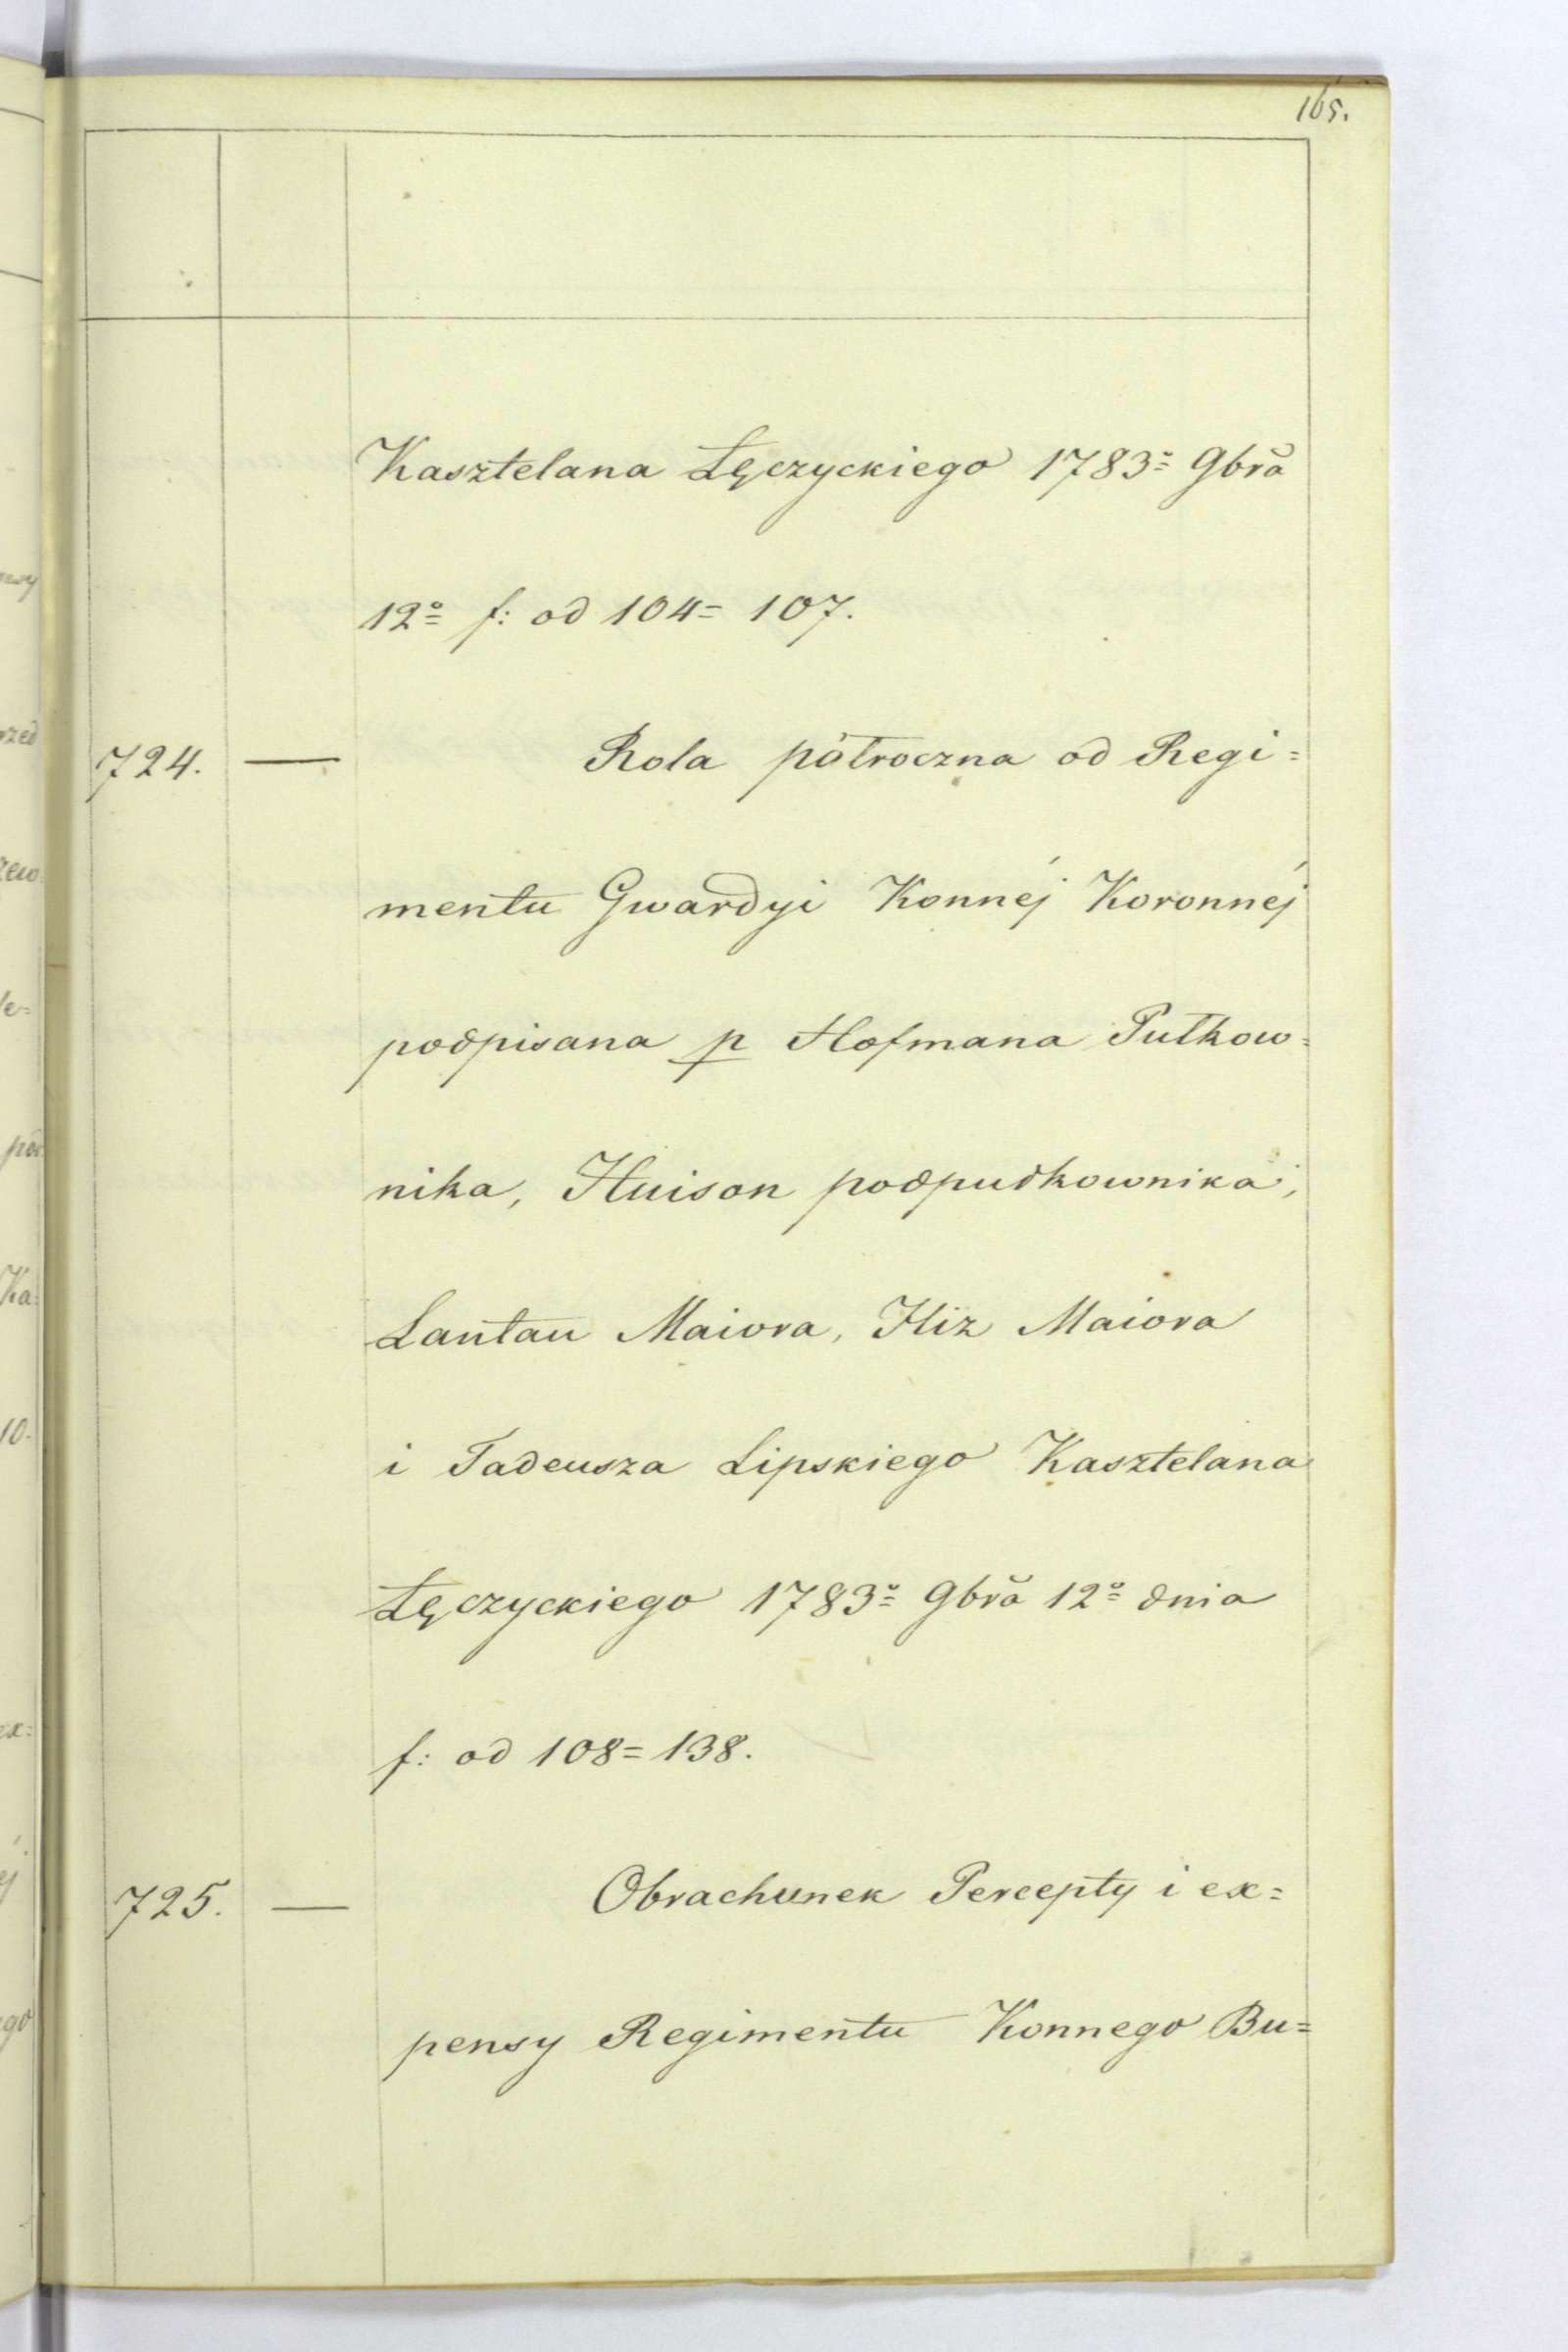 165.
Kasztelana Łęczyckiego 1783º 9bra
12º f: od 104= 107.
724. — Rola pòłroczna od Regi=
mentu Gwardyi Konnéj Koronnéj
podpisana p Hofmana Pułkow=
nika, Huison podpułkownika,
Lantau Maiora, Hiz Maiora
i Tadeusza Lipskiego Kasztelana
Łęczyckiego 1783º 9bra 12º dnia
f: od 108= 138.
725. — Obrachunek Percepty i ex=
pensy Regimentu Konnego Bu=